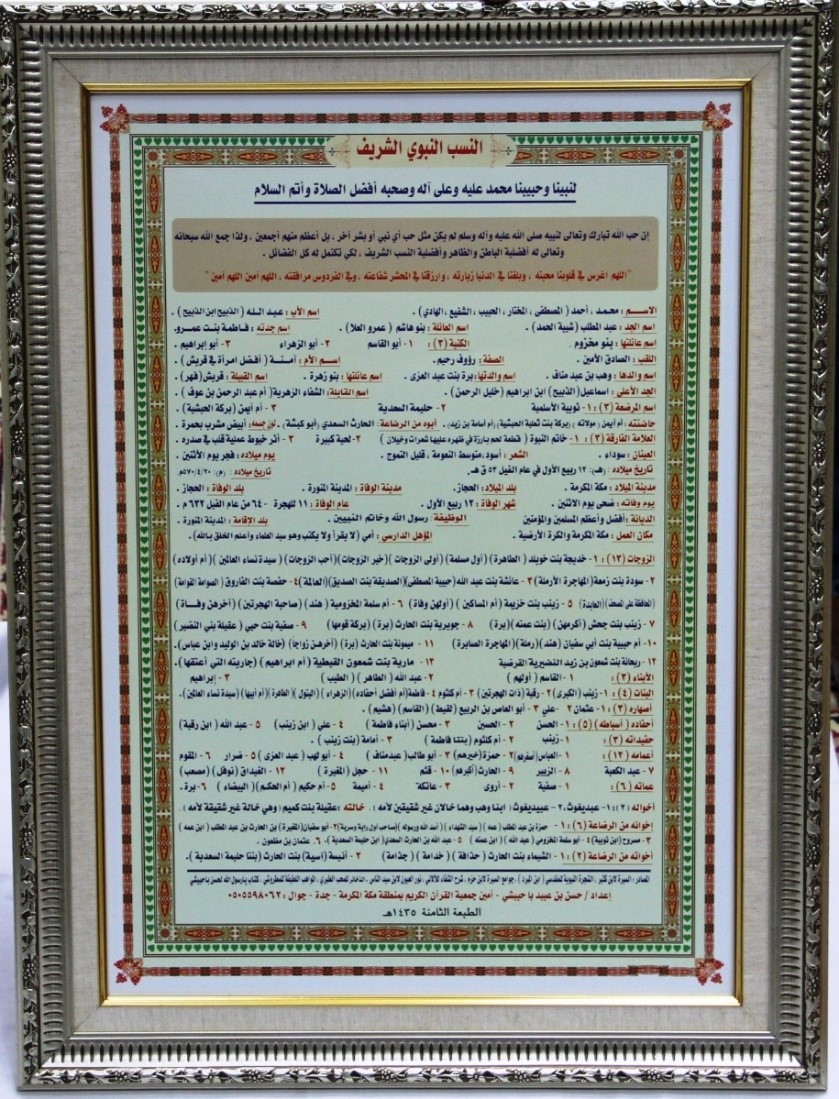 النسب النبوي الشريف
لنبينا وحبيبنا محمد عليه وعلى آله وصحبه أفضل الصلاة وأتم السلام
إن حب الله تبارك وتعالى لنبيه صلى الله عليه وآله وسلم لم يكن مثل حب أي نبي أو بشر آخر ، بل أعظم منهم أجمعين ، ولذا جمع الله سبحانه
وتعالى له أفضلية الباطن والظاهر وأفضلية النسب الشريف ، لكي تكتمل له كل الفضائل .
" اللهم اغرس في قلوبنا محبته ، وبلغنا في الدنيا زيارته ، وارزقنا في المحشر شفاعته ، وفي الفردوس مرافقته ، اللهم آمين اللهم آمين "
الاسم : محمد ، أحمد ( المصطفى ، المختار ، الحبيب ، الشفيع ، الهادي ) . اسم الأب : عبد الله ( الذبيح ابن الذبيح ) .
اسم الجد : عبد المطلب ( شيبة الحمد ) . اسم العائلة : بنو هاشم ( عمرو العلا ) . اسم جدته : فاطمة بنت عمرو
اسم عائلتها : بنو مخزوم الكنية (٣) : ١- أبو القاسم ٢- أبو الزهراء ٣- أبو إبراهيم .
اللقب : الصادق الأمين . الصفة : رؤوف رحيم . اسم الأم : آمنة ( أفضل امرأة في قريش ) .
اسم والدها : وهب بن عبد مناف . اسم والدتها : برة بنت عبد العزى . اسم عائلتها : بنو زهرة . اسم القبيلة : قريش (فهر) .
الجد الأعلى : اسماعيل (الذبيح) ابن ابراهيم (خليل الرحمن) . اسم القابلة : الشفاء الزهرية( أم عبد الرحمن بن عوف ) .
اسم المرضعة (٣) : ١- ثويبة الأسلمية ٢- حليمة السعدية ٣- أم أيمن (بركة الحبشية) .
حاضنته : أم أيمن ، مولاته ، (بركة بنت ثعلبة الحبشية) (أم أسامة بن زيد). أبوه من الرضاعة : الحارث السعدي (أبو كبشة) . لون جسمه : أبيض مشرب بحمرة .
العلامة الفارقة (٣) : ١- خاتم النبوة ( قطعة لحم بارزة في ظهره عليها شعرات وخيلان ) ٢- لحية كبيرة ٣- أثر خيوط عملية قلب في صدره .
العينان : سوداء . الشعر : أسود، متوسط النعومة ، قليل التموج . يوم ميلاده : فجر يوم الأثنين .
تاريخ ميلاده : (هـ): ١٢ ربيع الأول في عام الفيل ٥٢ ق هـ . تاريخ ميلاده : (م): ٥٧٠/٤/٢٠م .
مدينة الميلاد : مكة المكرمة . بلد الميلاد : الحجاز . مدينة الوفاة : المدينة المنورة . بلد الوفاة : الحجاز .
يوم وفاته : ضحى يوم الأثنين . شهر الوفاة : ١٢ ربيع الأول . عام الوفاة : ١١ للهجرة - ٦٤ من عام الفيل ٦٣٢ م .
الديانة : أفضل وأعظم المسلمين والمؤمنين الوظيفة : رسول الله وخاتم النبيين . بلد الإقامة : المدينة المنورة .
مكان العمل : مكة المكرمة والكرة الأرضية . المؤهل الدراسي : أمي ( لا يقرأ ولا يكتب وهو سيد العلماء وأعلم الخلق بالله) .
الزوجات (١٣) : ١- خديجة بنت خويلد ( الطاهرة ) ( أول مسلمة ) (أولى الزوجات) (خير الزوجات) (أحب الزوجات) ( سيدة نساء العالمين ) ( أم أولاده )
٢- سودة بنت زمعة (المهاجرة الأرملة) ٣- عائشة بنت عبد الله (حبيبة المصطفى) (الصديقة بنت الصديق) (العالمة) ٤- حفصة بنت الفاروق (الصوامة القوامة)
(الحافظة على المصحف) (العابدة) ٥- زينب بنت خزيمة (أم المساكين ) (أولهن وفاة) ٦- أم سلمة المخزومية ( هند ) (صاحبة الهجرتين) (آخرهن وفاة )
٧- زينب بنت جحش (أكرمهن) (بنت عمته) (برة) ٨- جويرية بنت الحارث (برة) (بركة قومها) ٩- صفية بنت حيي ( عقيلة بني النضير )
١٠- أم حبيبة بنت أبي سفيان (هند) (رملة) (المهاجرة الصابرة) ١١- ميمونة بنت الحارث (برة) (آخرهن زواجاً) (خالة خالد بن الوليد وابن عباس).
١٢- ريحانة بنت شمعون بن زيد النضيرية القرضية ١٣- مارية بنت شمعون القبطية ( أم ابراهيم ) (جاريته التي أعتقها ) .
الأبناء (٣) : ١- القاسم ( أولهم ) ٢- عبد الله ( الطاهر ) ( الطيب ) ٣- إبراهيم
البنات (٤) : ١- زينب (الكبرى) ٢- رقية (ذات الهجرتين) ٣- أم كلثوم ٤- فاطمة (أم أفضل أحفاده) (الزهراء ) (البتول) ( الطاهرة ) (أم أبيها) (سيدة نساء العالمين).
أصهاره (٣) : ١- عثمان ٢- علي ٣- أبو العاص بن الربيع (لقيط) ( القاسم) ( هشيم ) .
أحفاده ( أسباطه) (٥) : ١- الحسن ٢- الحسين ٣- محسن (أبناء فاطمة ) ٤- علي ( ابن زينب) ٥- عبد الله ( ابن رقية)
حفيداته (٣) : ١- زينب ٢- أم كلثوم ( بنتا فاطمة ) ٣- أمامة (بنت زينب ) .
أعمامه (١٢) : ١- العباس (أصغرهم) ٢- حمزة (خيرهم) ٣- أبو طالب (عبد مناف ) ٤- أبو لهب ( عبد العزى ) ٥- ضرار ٦- المقوم
٧- عبد الكعبة ٨- الزبير ٩- الحارث (أكبرهم) ١٠- قثم ١١- حجل (المغيرة ) ١٢- الغيداق (نوفل) ( مصعب)
عماته (٦) : ١- صفية ٢- أروى ٣- عاتكة ٤- أميمة ٥- أم حكيم ( أم الحكم) ( البيضاء ) ٦- برة .
أخواله (٢) : ١- عبد يغوث ٢- عبيد يغوث: ابنا وهب وهما خالان غير شقيقين لأمه . خالته (عقيلة بنت كميم) (وهي خالة غير شقيقة لأمه )
إخوانه من الرضاعة (٦) : ١- حمزة بن عبد المطلب ( عمه ) ( سيد الشهداء ) ( أسد الله ورسوله ) (صاحب أول راية وسرية) ٢- أبو سفيان (المغيرة) بن الحارث بن عبد المطلب ( ابن عمه )
٣- مسروح (ابن ثويبة) ٤- أبو سلمة المخزومي ( عبد الله ) ( ابن عمته ) ٥- عبد الله بن الحارث السعدي( ابن حليمة السعدية ). ٦. عثمان بن مظعون .
أخواته من الرضاعة (٢) : ١- الشيماء بنت الحارث ( حذافة ) ( خدامة ) ( جذامة ) ٢- أنيسة (آسية) بنت الحارث (بنتا حليمة السعدية ) .
إعداد / حسن بن عبيد باحبيشي - أمين جمعية القرآن الكريم بمنطقة مكة المكرمة - جدة - جوال : ٠٥٠٥٥٩٨٠٦٢
الطبعة الثامنة ١٤٣٥هـ